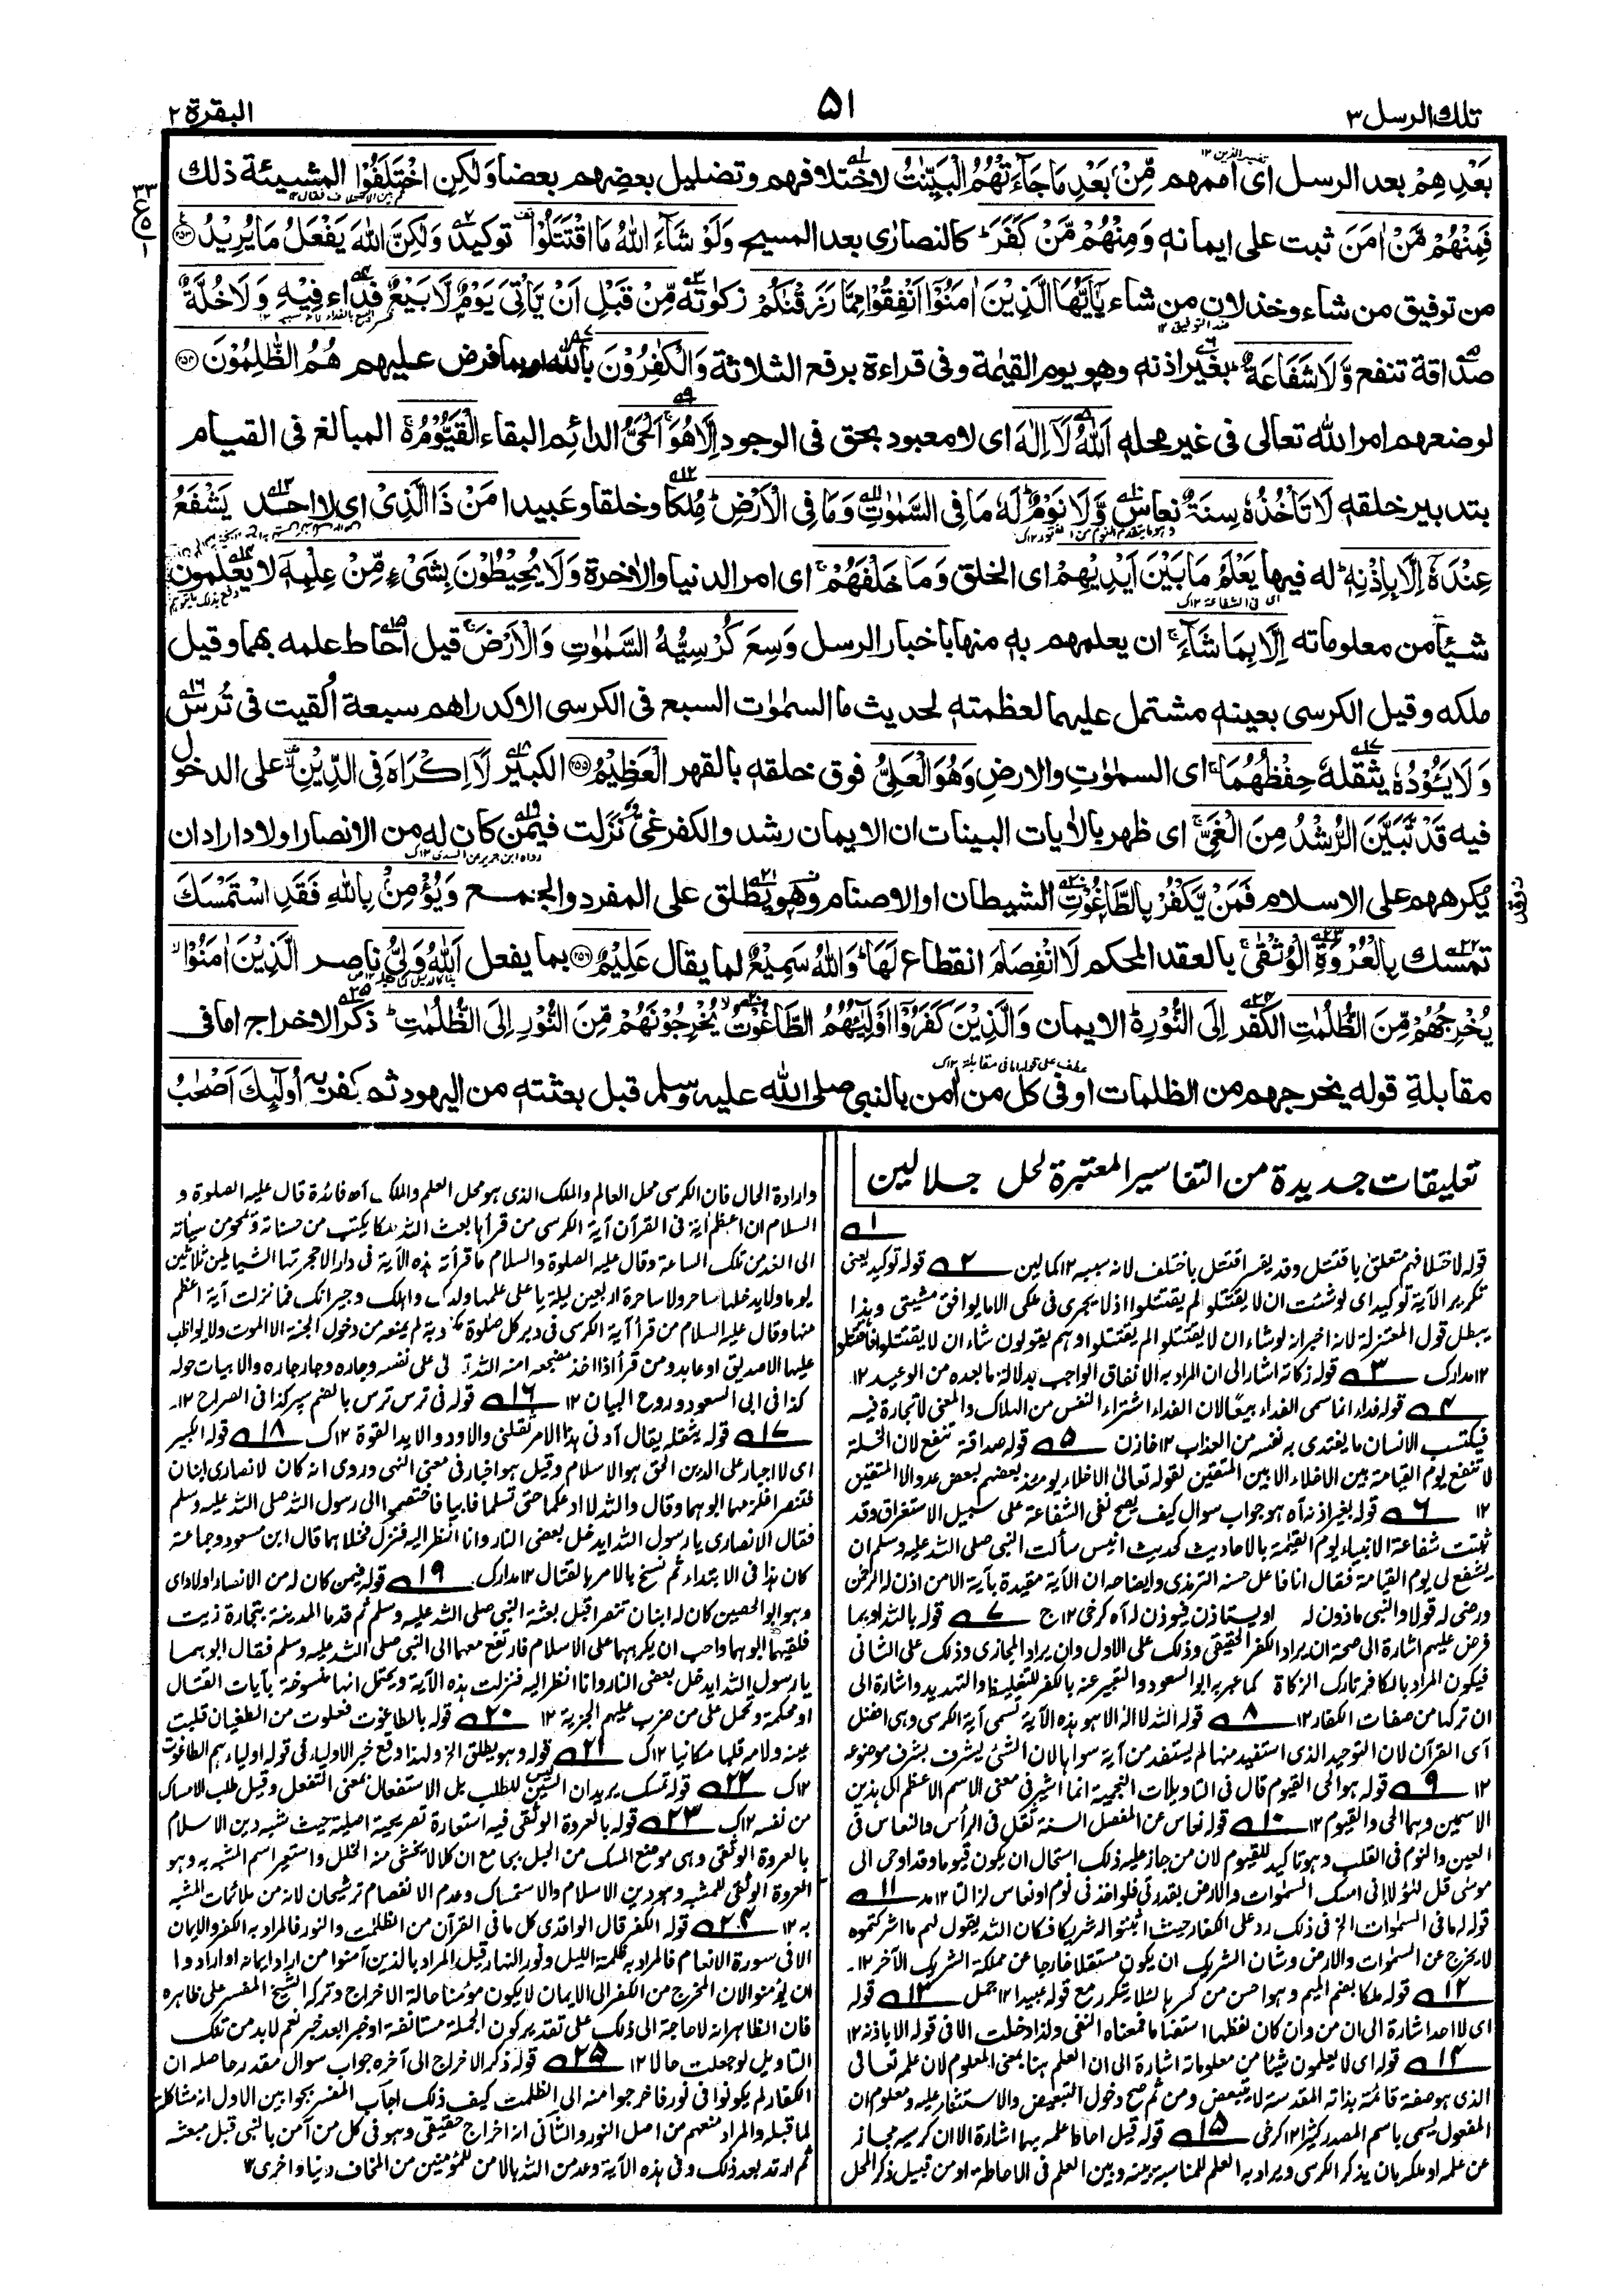 تلك الرسل ۳
۵۱
البقرة ۲
بَعْدِهِمْ بعد الرسل اى اممهم مِّنْۢ بَعْدِ مَا جَآءَتْهُمُ الْبَيِّنٰتُ لاختلافهم وتضليل بعضهم بعضا وَلٰكِنِ اخْتَلَفُوْا لمشيئة ذلك
فَمِنْهُمْ مَّنْ اٰمَنَ ثبت على ايمانه وَمِنْهُمْ مَّنْ كَفَرَ كالنصارٰى بعد المسيح وَلَوْ شَآءَ اللّٰهُ مَا اقْتَتَلُوْا توكيد وَلٰكِنَّ اللّٰهَ يَفْعَلُ مَا يُرِيْدُ ۲۵۳
من توفيق من شاء وخذلان من شاء يٰٓاَيُّهَا الَّذِيْنَ اٰمَنُوْٓا اَنْفِقُوْا مِمَّا رَزَقْنٰكُمْ زكوته مِّنْ قَبْلِ اَنْ يَّاْتِىَ يَوْمٌ لَّا بَيْعٌ فداء فِيْهِ وَلَا خُلَّةٌ
صداقة تنفع وَّلَا شَفَاعَةٌ بغير اذنه وهو يوم القيٰمة وفى قراءة برفع الثلاثة وَالْكٰفِرُوْنَ بالله او بما فرض عليهم هُمُ الظّٰلِمُوْنَ ۲۵۴
لوضعهم امر الله تعالى فى غير محله اَللّٰهُ لَآ اِلٰهَ اى لا معبود بحق فى الوجود اِلَّا هُوَ اَلْحَىُّ الدائم البقاء الْقَيُّوْمُ المبالغ فى القيام
بتدبير خلقه لَا تَاْخُذُهٗ سِنَةٌ نعاس وَّلَا نَوْمٌ لَهٗ مَا فِى السَّمٰوٰتِ وَمَا فِى الْاَرْضِ مُلكا وخلقا وعَبيدا مَنْ ذَا الَّذِىْ اى لا احد يَشْفَعُ
عِنْدَهٗٓ اِلَّا بِاِذْنِهٖ له فيها يَعْلَمُ مَا بَيْنَ اَيْدِيْهِمْ اى الخلق وَمَا خَلْفَهُمْ اى امر الدنيا والاخرة وَلَا يُحِيْطُوْنَ بِشَىْءٍ مِّنْ عِلْمِهٖٓ لا يعلمون
شيأ من معلوماته اِلَّا بِمَا شَآءَ ان يعلمهم به منها باخبار الرسل وَسِعَ كُرْسِيُّهُ السَّمٰوٰتِ وَالْاَرْضَ قيل احاط علمه بهما وقيل
ملكه وقيل الكرسى بعينه مشتمل عليهما لعظمته لحديث ما السمٰوٰت السبع فى الكرسى الا كدراهم سبعة اُلقيت فى تُرس
وَلَا يَـُٔوْدُهٗ يثقله حِفْظُهُمَا اى السمٰوٰت والارض وَهُوَ الْعَلِىُّ فوق خلقه بالقهر الْعَظِيْمُ ۲۵۵ الكبير لَآ اِكْرَاهَ فِى الدِّيْنِ على الدخول
فيه قَدْ تَّبَيَّنَ الرُّشْدُ مِنَ الْغَىِّ اى ظهر بالاٰيات البينات ان الايمان رشد والكفر غى نَزَلت فيمن كان له من الانصار اولاد اراد ان
يكرههم على الاسلام فَمَنْ يَّكْفُرْ بِالطَّاغُوْتِ الشيطان او الاصنام وهو يطلق على المفرد والجمع وَيُؤْمِنْۢ بِاللّٰهِ فَقَدِ اسْتَمْسَكَ
تمسك بِالْعُرْوَةِ الْوُثْقٰى بالعقد المحكم لَا انْفِصَامَ انقطاع لَهَا وَاللّٰهُ سَمِيْعٌ لما يقال عَلِيْمٌ ۲۵۶ بما يفعل اَللّٰهُ وَلِىُّ ناصر الَّذِيْنَ اٰمَنُوْا
يُخْرِجُهُمْ مِّنَ الظُّلُمٰتِ الكفر اِلَى النُّوْرِ الايمان وَالَّذِيْنَ كَفَرُوْٓا اَوْلِيٰٓـُٔهُمُ الطَّاغُوْتُ يُخْرِجُوْنَهُمْ مِّنَ النُّوْرِ اِلَى الظُّلُمٰتِ ذكر الاخراج اما فى
مقابلةِ قوله يخرجهم من الظلمات او فى كل من اٰمن بالنبى صلى الله عليه وسلم قبل بعثته من اليهود ثم كفر به اُولٰٓئِكَ اَصْحٰبُ
تعليقات جديدة من التفاسير المعتبرة لحل جلالين
۱
قوله لاختلافهم متعلق باقتتل وقد يفسر اقتتل باختلف لانه سببه ۱۲ كمالين ۲ قوله توكيد يعنى
تكرير الآية توكيد اى لو شئت ان لا يقتتلوا لم يقتتلوا اذ لا يجرى فى ملكى الا ما يوافق مشيتى وهذا
يبطل قول المعتزلة لانه اخبر انه لو شاء ان لا يقتتلوا لم يقتتلوا وهم يقولون شاء ان لا يقتتلوا فاقتتلوا
۱۲ مدارك ۳ قوله زكاته اشار الى ان المراد به الانفاق الواجب بدلالة ما بعده من الوعيد ۱۲
۴ قوله فداء انما سمى الفداء بيعًا لان الفداء اشتراء النفس من الهلاك والمعنى لا تجارة فيه
فيكتسب الانسان ما يفتدى به نفسه من العذاب ۱۲ خازن ۵ قوله صداقة تنفع لان الخلة
لا تنفع يوم القيامة بين الاخلاء الا بين المتقين لقوله تعالى الاخلاء يومئذ بعضهم لبعض عدو الا المتقين
۱۲ ۶ قوله بغير اذنه آه هو جواب سوال كيف يصح نفى الشفاعة على سبيل الاستغراق وقد
ثبتت شفاعة الانبياء يوم القيمة بالاحاديث كحديث انيس سألت النبى صلى الله عليه وسلم ان
يشفع لى يوم القيامة فقال انا فاعل حسنه الترمذى وايضاحه ان الآية مقيدة بآية الا من اذن له الرحمن
ورضى له قولا والنبى ماذون له او يستأذن فيوذن له آه كرخى ۱۲ ج ۷ قوله بالله او بما
فرض عليهم اشارة الى صحة ان يراد الكفر الحقيقى وذلك على الاول وان يراد المجازى وذلك على الثانى
فيكون المراد بالكافر تارك الزكاة كما عبر به ابو السعود والتعبير عنه بالكفر للتغليظ والتهديد واشارة الى
ان تركها من صفات الكفار ۱۲ ۸ قوله الله لا اله الا هو هذه الآية تسمى آية الكرسى وهى افضل
آى القرآن لان التوحيد الذى استفيد منها لم يستفد من آية سواها لان الشئ يشرف بشرف موضوعه
۱۲ ۹ قوله هو الحى القيوم قال فى التاويلات النجمية انما اشير فى معنى الاسم الاعظم الى هذين
الاسمين وهما الحى والقيوم ۱۲ ۱۰ قوله نعاس عن المفضل السنة ثقل فى الرأس والنعاس فى
العين والنوم فى القلب وهو تاكيد للقيوم لان من جاز عليه ذلك استحال ان يكون قيوما وقد اوحى الى
موسٰى قل لهؤلاء انى امسك السمٰوات والارض بقدرتى فلو اخذنى نوم او نعاس لزالتا ۱۲ مد ۱۱
قوله له ما فى السمٰوات الخ فى ذلك رد على الكفار حيث اثبتوا له شريكا فكان الله يقول لهم ما اشركتموه
لا يخرج عن السمٰوات والارض وشان الشريك ان يكون مستقلا خارجا عن مملكة الشريك الآخر ۱۲
۱۲ قوله ملكا بضم الميم وهو احسن من كسرها لئلا يتكرر مع قوله عبيدا ۱۲ جمل ۱۳ قوله
اى لا احد اشارة الى ان من وان كان لفظها استفهاما فمعناه النفى ولذا دخلت الا فى قوله الا باذنه ۱۲
۱۴ قوله اى لا يعلمون شيئا من معلوماته اشارة الى ان العلم هنا بمعنى المعلوم لان علمه تعالى
الذى هو صفة قائمة بذاته المقدسة لا يتبعض ومن ثم صح دخول التبعيض والاستثناء عليه ومعلوم ان
المفعول يسمى باسم المصدر كثيرا ۱۲ كرخى ۱۵ قوله قيل احاط علمه بهما اشارة الا ان كرسيه مجاز
عن علمه او ملكه بان يذكر الكرسى ويراد به العلم للمناسبة بينه وبين العلم فى الاحاطة او من قبيل ذكر المحل
وارادة الحال فان الكرسى محل العالم والملك الذى هو محل العلم والملك آه فائدة قال عليه الصلوة و
السلام ان اعظم آية فى القرآن آية الكرسى من قرأها بعث الله ملكا يكتب من حسناته ويمحو من سيأته
الى الغد من تلك الساعة وقال عليه الصلوة والسلام ما قرأت هذه الآية فى دار الا هجرتها الشياطين ثلاثين
يوما ولا يدخلها ساحر ولا ساحرة اربعين ليلة يا على علمها ولدك واهلك وجيرانك فما نزلت آية اعظم
منها وقال عليه السلام من قرأ آية الكرسى فى دبر كل صلوة مكتوبة لم يمنعه من دخول الجنة الا الموت ولا يواظب
عليها الا صديق او عابد ومن قرأ اذا اخذ مضجعه امنه الله تعالى على نفسه وجاره وجار جاره والابيات حوله
كذا فى ابى السعود وروح البيان ۱۲ ۱۶ قوله فى ترس ترس بالضم سپر كذا فى الصراح ۱۲
۱۷ قوله يثقله يقال آدنى هذا الامر يثقلنى والاود والايد القوة ۱۲ ك ۱۸ قوله الكبير
اى لا اجبار على الدين الحق هو الاسلام وقيل هو اخبار فى معنى النهى وروى انه كان لانصارى ابنان
فتنصرا فلزمهما ابوهما وقال والله لا ادعكما حتى تسلما فابيا فاختصموا الى رسول الله صلى الله عليه وسلم
فقال الانصارى يا رسول الله ايدخل بعضى النار وانا انظر اليه فنزل فخلاهما قال ابن مسعود وجماعة
كان هذا فى الابتداء ثم نسخ بالامر بالقتال ۱۲ مدارك ۱۹ قوله فيمن كان له من الانصار اولاد اى
وهو ابو الحصين كان له ابنان تنصرا قبل بعثة النبى صلى الله عليه وسلم ثم قدما المدينة بتجارة زيت
فلقيهما ابوهما واحب ان يكرههما على الاسلام فارتفع معهما الى النبى صلى الله عليه وسلم فقال ابوهما
يا رسول الله ايدخل بعضى النار وانا انظر اليه فنزلت هذه الآية ويحتمل انها منسوخة بآيات القتال
او محكمة وتحمل على من ضرب عليهم الجزية ۱۲ ۲۰ قوله بالطاغوت فعلوت من الطغيان قلبت
عينه ولامه قلبا مكانيا ۱۲ ك ۲۱ قوله وهو يطلق الخ ولهذا وقع خبر الاولياء فى قوله اولياءهم الطاغوت
۱۲ ك ۲۲ قوله تمسك يريد ان السين ليس للطلب بل الاستفعال بمعنى التفعل وقيل طلب الامساك
من نفسه ۱۲ ك ۲۳ قوله بالعروة الوثقى فيه استعارة تصريحية اصلية حيث شبه دين الاسلام
بالعروة الوثقى وهى موضع المسك من الحبل بجامع ان كلا لا يخشى منه الخلل واستعير اسم المشبه به وهو
العروة الوثقى للمشبه وهو دين الاسلام والاستمساك وعدم الانفصام ترشيحان لانه من ملائمات المشبه
به ۱۲ ۲۴ قوله الكفر قال الواقدى كل ما فى القرآن من الظلمٰت والنور فالمراد به الكفر والايمان
الا فى سورة الانعام فالمراد به ظلمة الليل ونور النهار قيل المراد بالذين آمنوا من اراد ايمانه او ارادوا
ان يؤمنوا لان المخرج من الكفر الى الايمان لا يكون مؤمنا حالة الاخراج وتركه الشيخ المفسر على ظاهره
فان الظاهر انه لا حاجة الى ذلك على تقدير كون الجملة مستانفة او خبرا بعد خبر نعم لابد من تلك
التاويل لو جعلت حالا ۱۲ ۲۵ قوله ذكر الاخراج الى آخره جواب سوال مقدر حاصله ان
الكفار لم يكونوا فى نور فاخرجوا منه الى الظلمٰت كيف ذلك اجاب المفسر بجوابين الاول انه مشاكلة
لما قبله والمراد منعهم من اصل النور والثانى انه اخراج حقيقى وهو فى كل من آمن بالنبى قبل مبعثه
ثم ارتد بعد ذلك وفى هذه الآية وعد من الله بالامن للمؤمنين من المخاف دنيا واخرى ۱۲